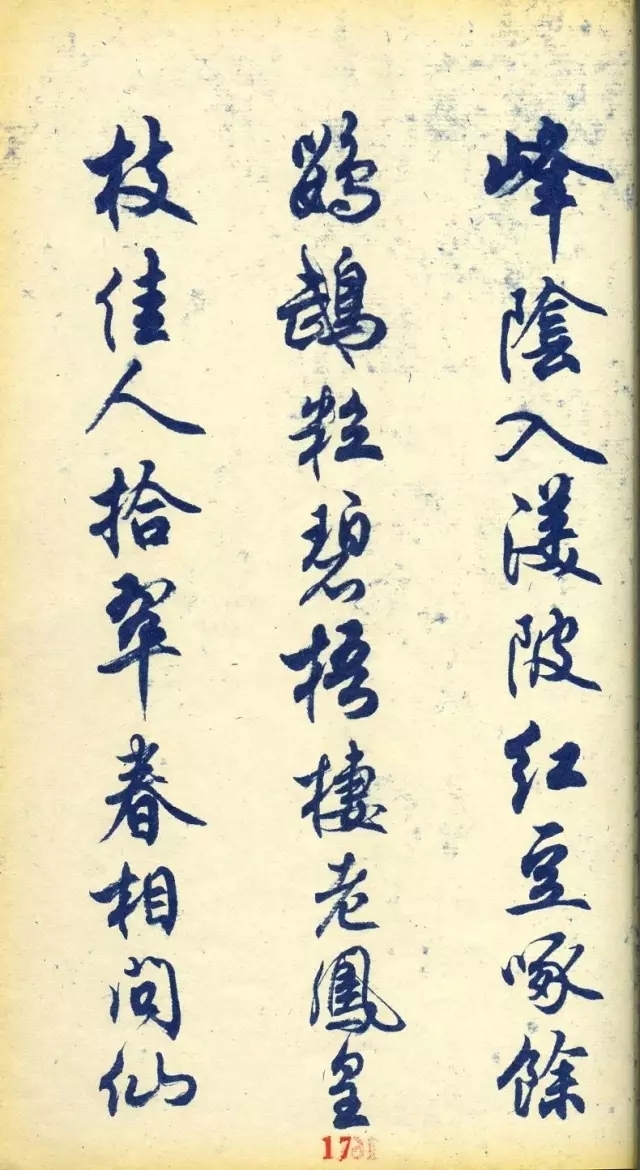 峰陰入渼陂紅豆啄餘
鸚鵡粒碧梧棲老鳳皇
枝佳人拾翠春相問仙
17